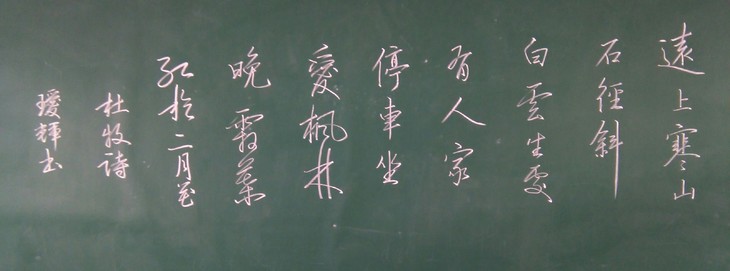 遠上寒山
石徑斜
白雲生處
有人家
停車坐
愛楓林
晚霜葉
紅於二月花
杜牧詩
璦輝書